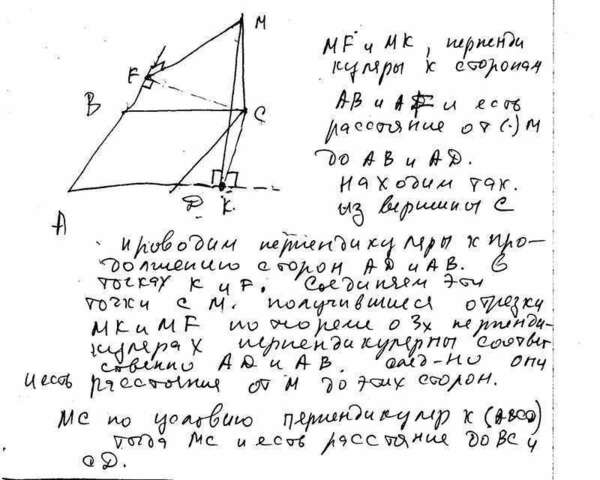 M
F
B
C
A
D K.
MF и MK, перпенди
куляры к сторонам
AB и AD и есть
расстояние от (·) M
до AB и AD.
Находим так.
из вершины C
проводим перпендикуляры к про-
должению сторон AD и AB. в
точках K и F. Соединяем эти
точки с M. получившиеся отрезки
MK и MF по теореме о 3х перпенди-
кулярах перпендикулярны соответ
ственно AD и AB. след-но они
и есть расстояние от M до этих сторон.
MC по условию перпендикуляр к (ABCD)
тогда MC и есть расстояние до BC и
CD.